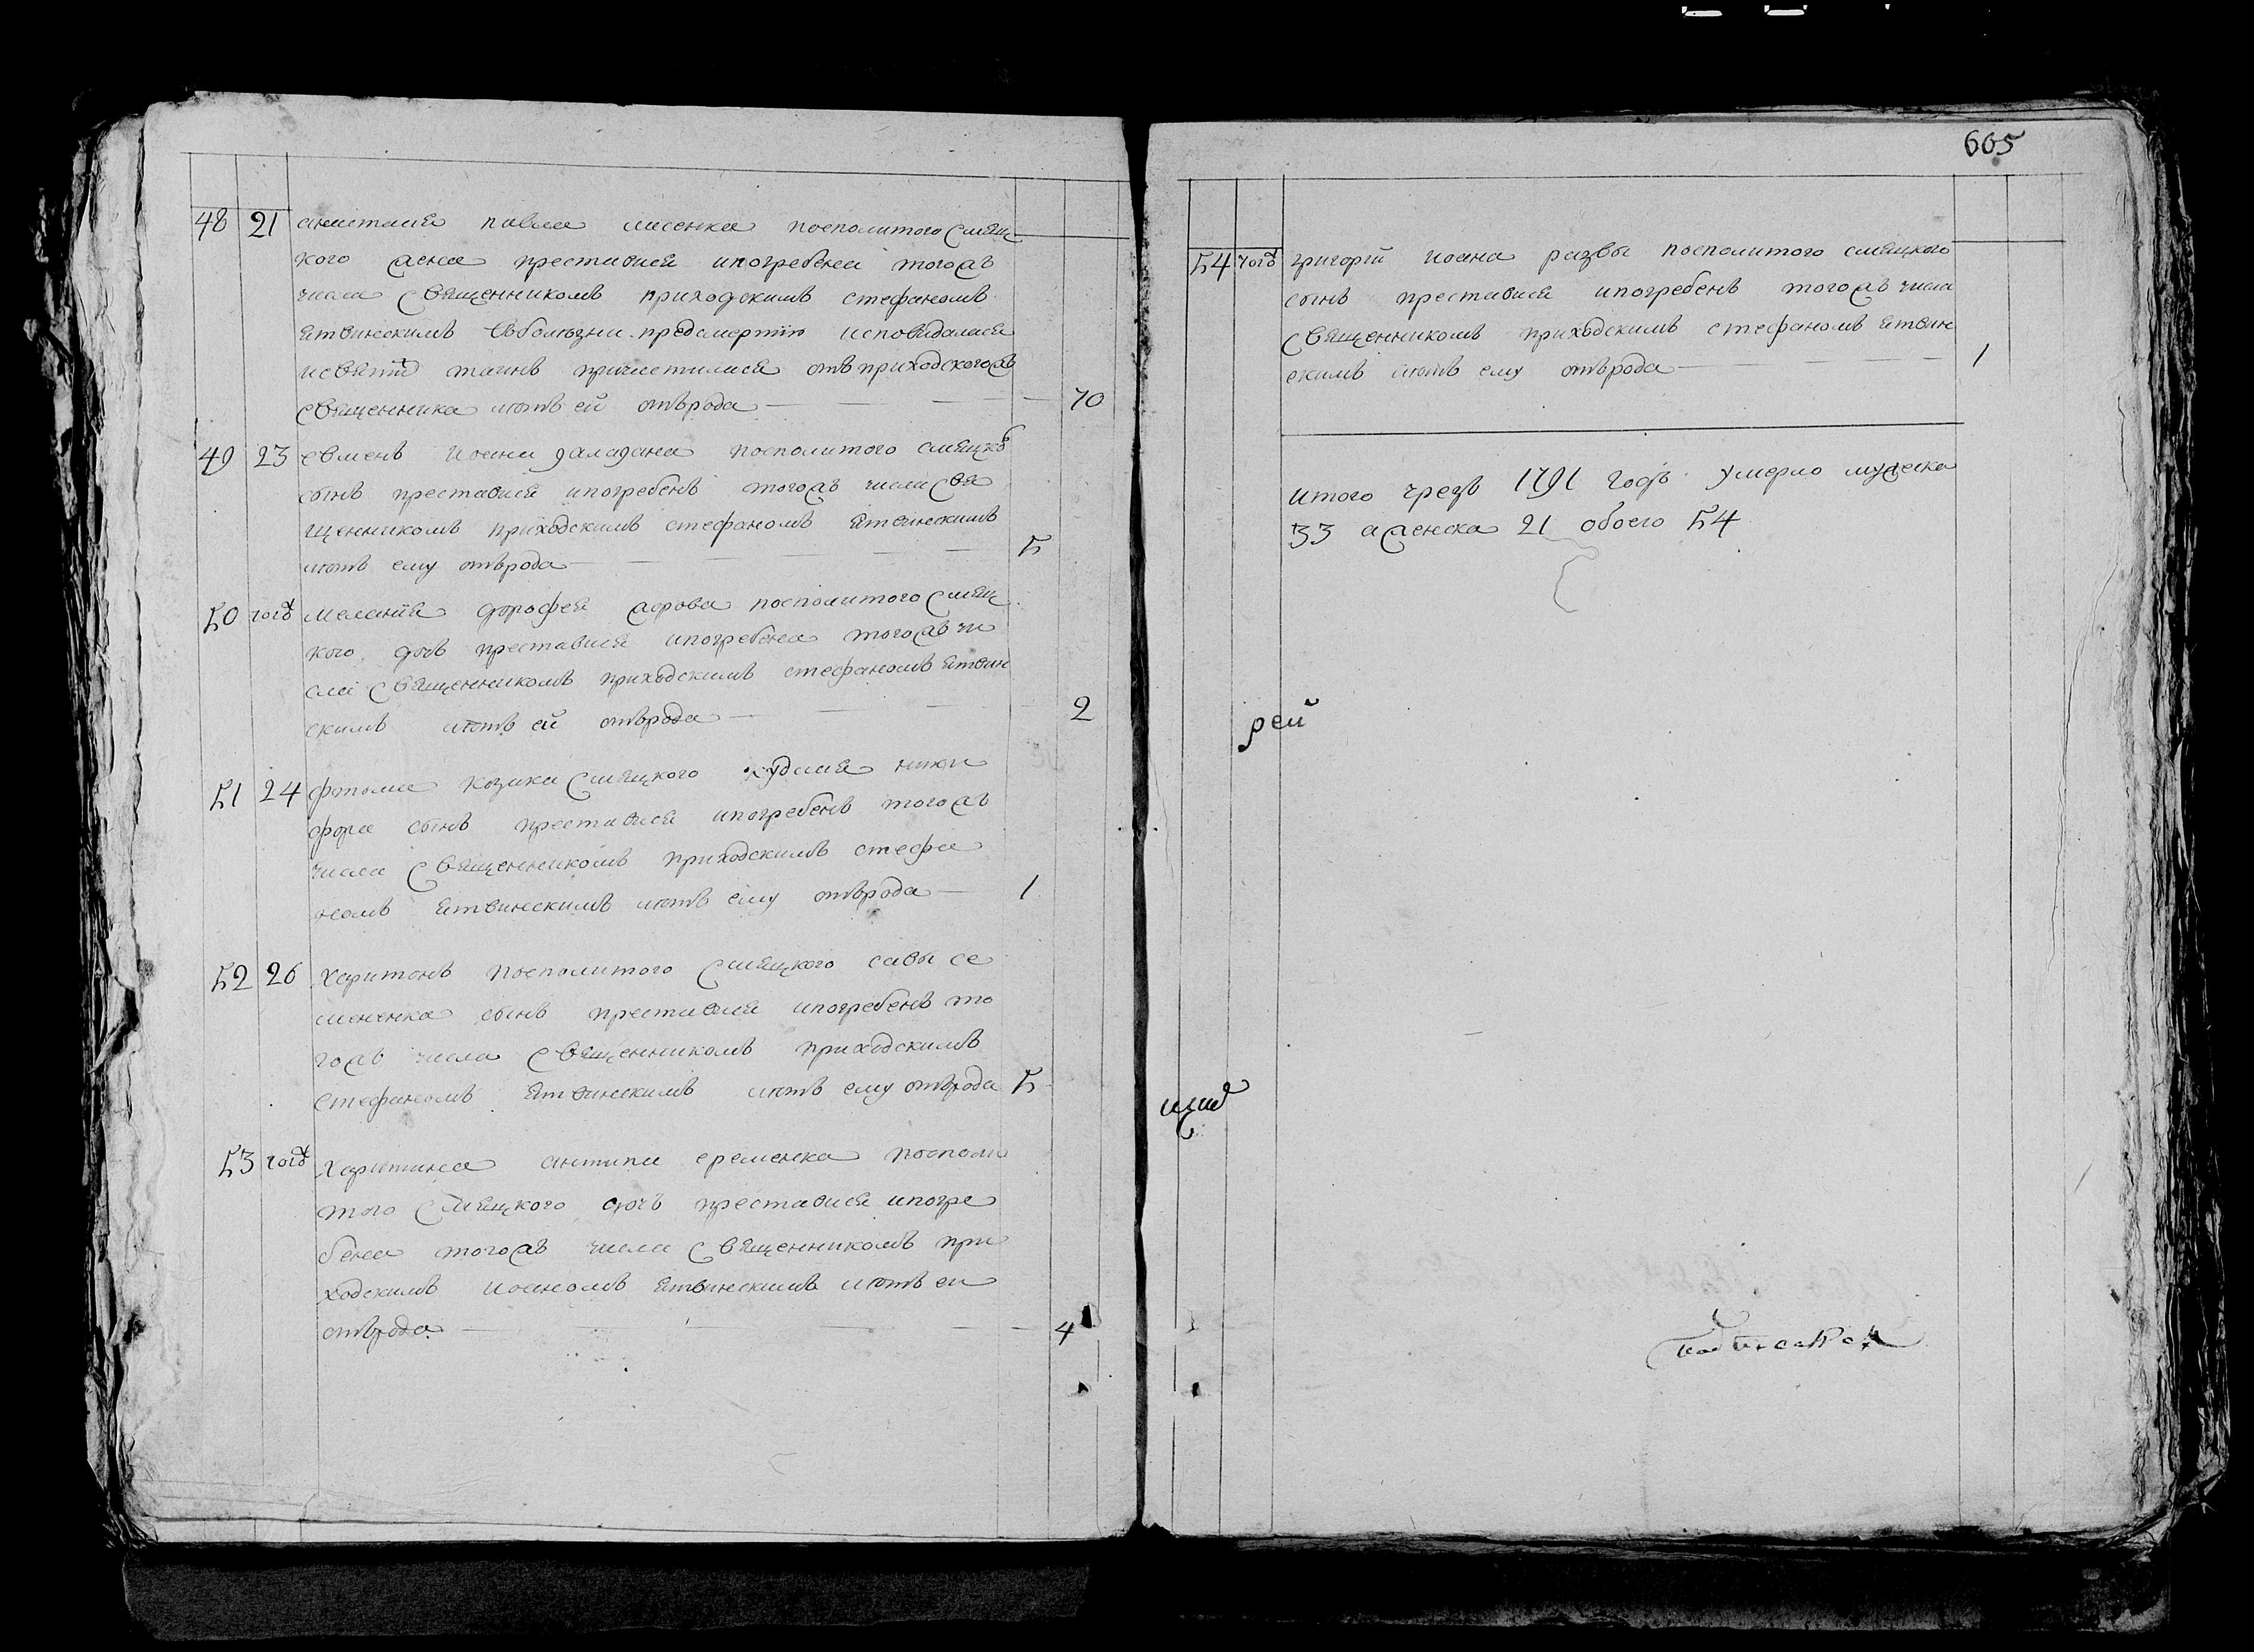 48 21 анастасия павла лисенка посполитого смящ
кого жена преставися ипогребена тогожъ
числа священникомъ приходскимъ стефаномъ
ятвинскимъ вболѣзни предсмертію исповидалася
исвятих таинъ причастилася отъ приходскогожъ
священника лютъ ей отврода — 70
49 23 евменъ иоана даладана посполитого смяцко
сынъ преставися ипогребенъ тогожъ числа свя
щенникомъ приходскимъ стефаномъ ятвинскимъ
лютъ ему отврода — 5
50 тогож мелания дорофея посполитого смяц
кого дочъ преставися ипогребена тогожъ чи
сла священникомъ приходскимъ стефаномъ ятвин
скимъ лютъ ей отврода — 2
51 24 фтома козака смяцкого кудмая ники
фора сынъ преставися ипогребенъ тогожъ
числа священникомъ приходскимъ стефа
номъ ятвинскимъ лютъ ему отврода — 1
52 26 харитонъ посполитого смяцкого савы се
мененка сынъ преставися ипогребенъ то
гожъ числа священникомъ приходскимъ
стефаномъ ятвинскимъ лютъ ему отврода 5
53 тогож харитина антипа еременка посполи
того смяцкого дочъ преставися ипогре
бена тогожъ числа священникомъ при
ходскимъ иоаномъ ятвинскимъ лютъ еи
отврода — 4
605
54 тогож григорий иоана развы посполитого смяцкого
сынъ преставися ипогребенъ тогожъ числа
священникомъ приходскимъ стефаномъ ятвин
скимъ лютъ ему отврода — 1
итого чрезъ 1791 годъ умерло мужеска
33 аженска 21 обоего 54
рей